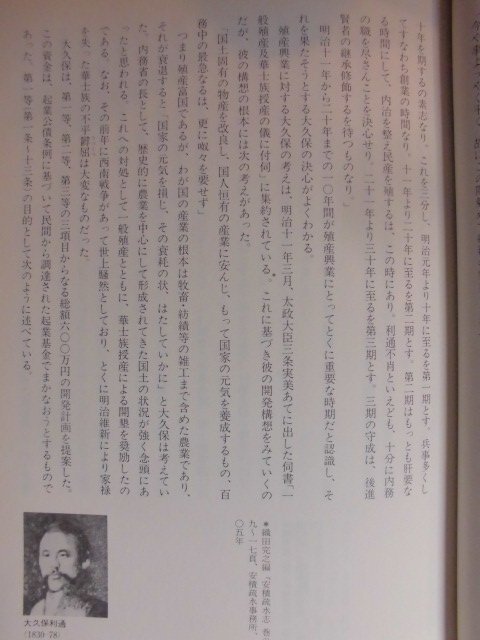 十年を期するの素志なり、これを三分し、明治元年より十年に至るを第一期とす。兵事多くし
てすなわち創業の時間なり。十一年より二十年に至るを第二期とす。第二期はもっとも肝要な
る時間にして、内治を整え民産を殖するは、この時にあり。利通不肖といえども、十分に内務
の職を尽さんことを決心せり。二十一年より三十年に至るを第三期とす。三期の守成は、後進
賢者の継承修飾するを待つものなり。」
明治十一年から二十年までの一〇年間が殖産興業にとってとくに重要な時期だと認識し、そ
れを果たそうとする大久保の決心がよくわかる。
殖産興業に対する大久保の考えは、明治十一年三月、太政大臣三条実美あてに出した伺書「一
般殖産及華士族授産の儀に付伺」に集約されている。*これに基づき彼の開発構想をみていくの
だが、彼の構想の根本には次の考えがあった。
「国土固有の物産を改良し、国人恒有の産業に安んし、もって国家の元気を養成するもの、百
務中の最急なるは、更に呶々を要せず」
つまり殖産富国であるが、わが国の産業の根本は牧畜・紡績等の雑工まで含めた農業であり、
それが衰退すると「国家の元気を損し、その衰耗の状、はたしていかに」と大久保は考えてい
た。内務省の長として、歴史的に農業を中心にして形成されてきた国土の状況が強く念頭にあ
ったと思われる。これへの対処として一般殖産とともに、華士族授産による開墾を奨励したの
である。なお、その前年に西南戦争があって世上騒然としており、とくに明治維新により家禄
を失った華士族の不平鬱屈は大変なものだった。
大久保は、第一等、第二等、第三等の三項目からなる総額六〇〇万円の開発計画を提案した。
この資金は、起業公債条例に基づいて民間から調達された起業基金でまかなおうとするもので
あった。第一等（第一条～十三条）の目的として次のように述べている。
*織田完之編『安積疏水志 巻
九～一七頁、安積疏水事務所、
〇五年
大久保利通
(1830-78)